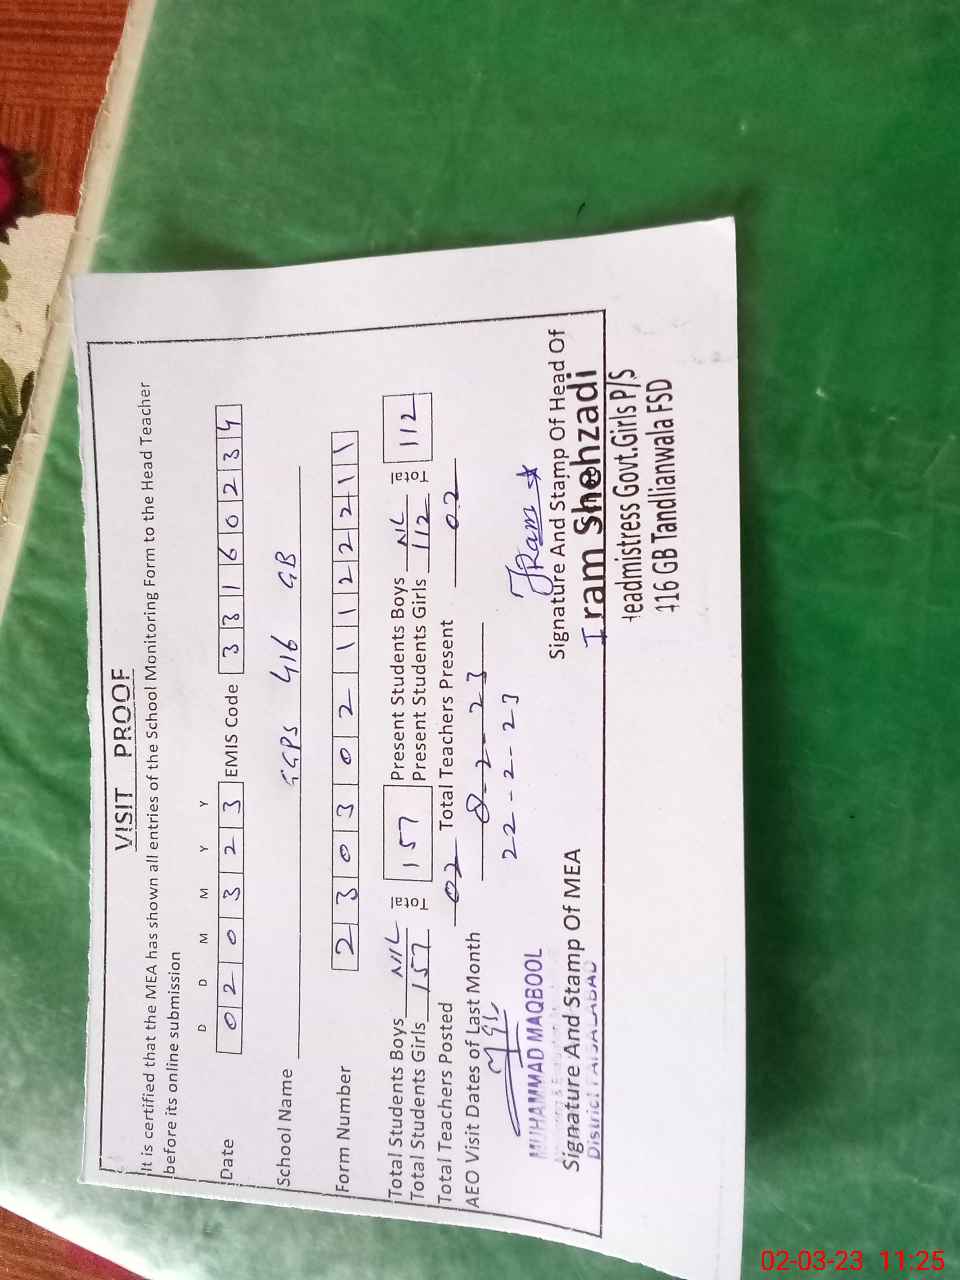 VISIT PROOF
It is certified that the MEA has shown all entries of the School Monitoring Form to the Head Teacher
before its online submission
D D M M Y Y
Date 0 2 0 3 2 3 EMIS Code 3 3 1 6 0 2 3 4
School Name GGPS 416 GB
Form Number 2 3 0 3 0 2 1 1 2 2 2 1 1
Total Students Boys NIL Total 157 Present Students Boys NIL Total 112
Total Students Girls 157 Present Students Girls 112
Total Teachers Posted 02 Total Teachers Present 02
AEO Visit Dates of Last Month 8-2-23
22-2-23
Iram
MUHAMMAD MAQBOOL
Signature And Stamp Of MEA Signature And Stamp Of Head Of
District FAISALABAD
Iram Shehzadi
Headmistress Govt.Girls P/S
416 GB Tandlianwala FSD
02-03-23 11:25